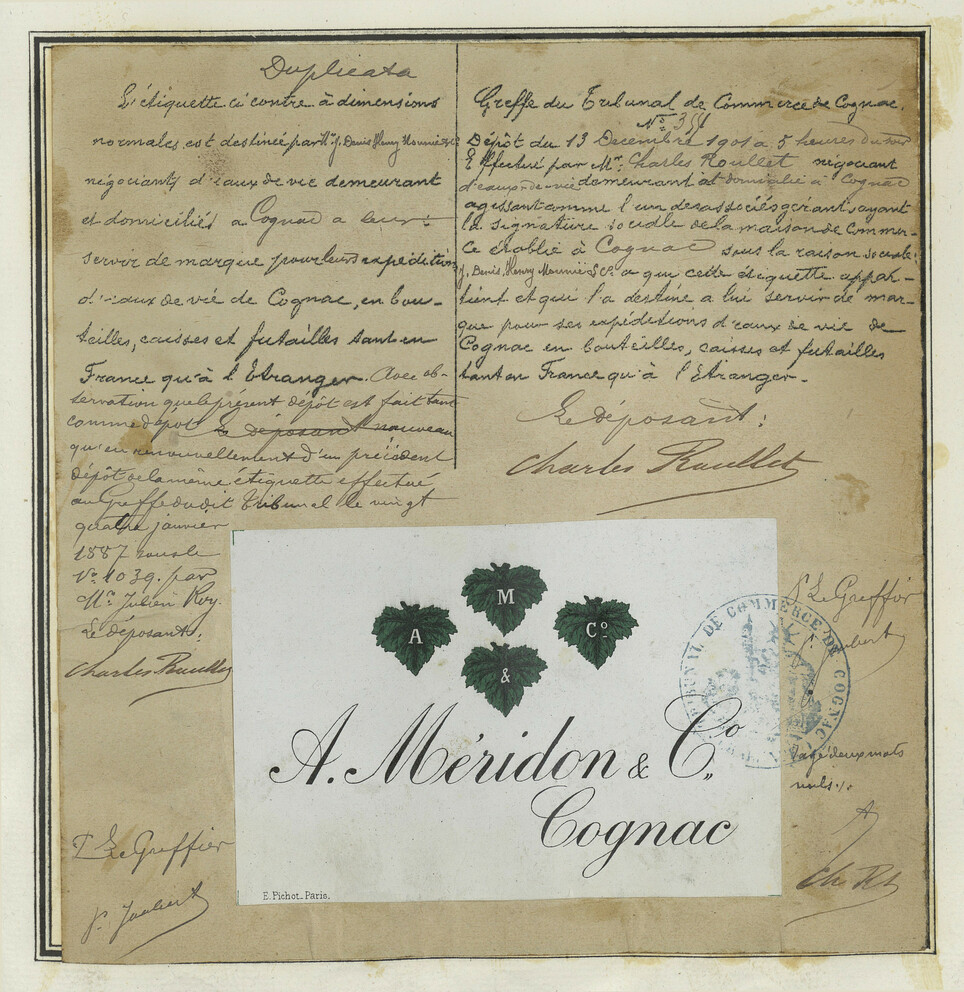 Duplicata
L'étiquette ci contre à dimensions
normales est destinée par Mrs J. Denis Henry Mounié & Co
négociants d'eaux de vie demeurant
et domiciliés a Cognac a leur
servir de marque pour leurs expéditions
d'eaux de vie de Cognac, en bou-
teilles, caisses et futailles tant en
France qu'à l'Etranger. Avec ob-
servation que le présent dépôt est fait tant
comme dépôt le déposant nouveau
qu'en renouvellement d'un précédent
dépôt de la même étiquette effectué
au Greffe du dit Tribunal le vingt
quatre janvier
1887 sous le
No 1039. par
Mr. Julien Roy.
Le déposant:
Charles Roullet
Greffe du Tribunal de Commerce de Cognac.
No
Dépôt du 13 Décembre 1901 a 5 heures du soir
Effectué par Mr. Charles Roullet négociant
d'eaux-de-vie demeurant et domicilié à Cognac
agissant comme l'un des associés gérants ayant
la signature sociale de la maison de Commer-
ce établie à Cognac sous la raison sociale:
J. Denis, Henry Mounié & Co. a qui cette étiquette appar-
tient et qui l'a destine a lui servir de mar-
que pour ses expéditions d'eaux de vie de
Cognac en bouteilles, caisses et futailles
tant en France qu'à l'Etranger-
Le déposant:
Charles Roullet
A
M
Co
&
A. Méridon & Co.
Cognac
E. Pichot. Paris.
TRIBUNAL DE COMMERCE DE COGNAC
Le Greffier
Joubert
deux mots
nuls
Ch. Rt
Le Greffier
Joubert